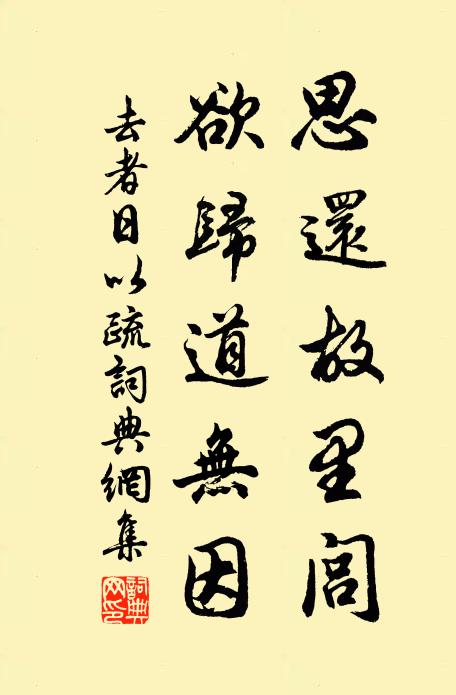 思還故里閭
欲歸道無因
去者日以疏詞典網集
詞典網印